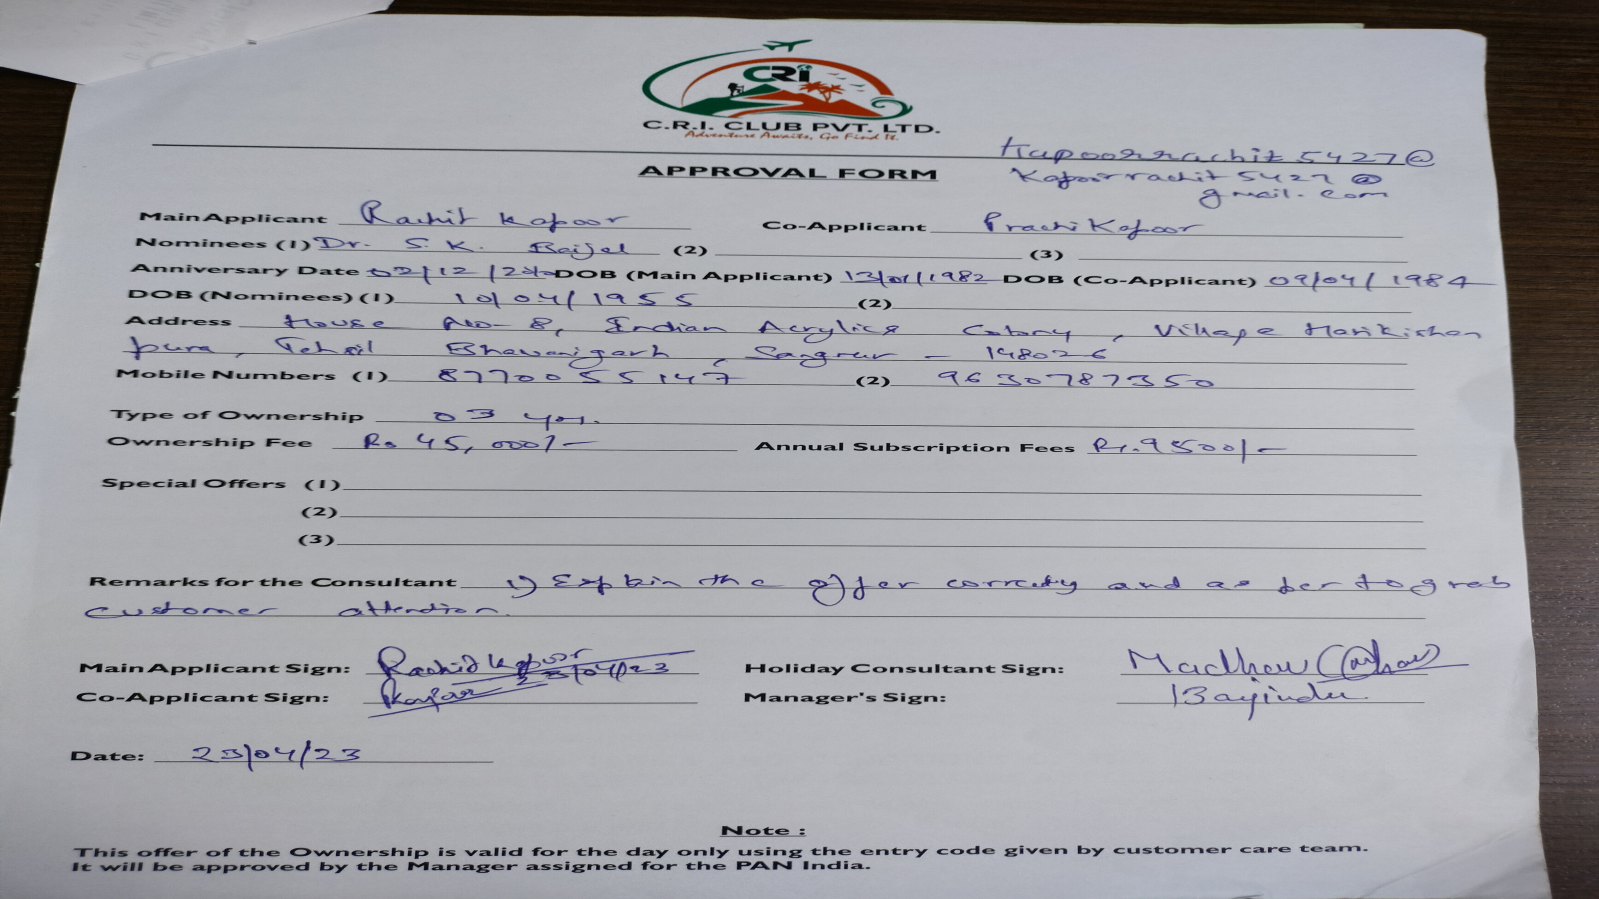 CRI
C.R.I. CLUB PVT. LTD.
Adventure Awaits, Go Find It.
Kapoorrachit5427@
APPROVAL FORM Kapoorrachit5427@
gmail.com
Main Applicant Rachit Kapoor Co-Applicant Prachi Kapoor
Nominees (1) Dr. S.K. Baijal (2) (3)
Anniversary Date 02/12/ DOB (Main Applicant) 13/01/1982 DOB (Co-Applicant) 09/04/1984
DOB (Nominees) (1) 10/04/1955 (2)
Address House No- 8, Indian Acrylics Colony, Village Harikishan
pura, Tehsil Bhawanigarh, Sangrur - 148026
Mobile Numbers (1) 8770055147 (2) 9630787350
Type of Ownership 03 yrs.
Ownership Fee Rs 45,000/- Annual Subscription Fees Rs.9500/-
Special Offers (1)
(2)
(3)
Remarks for the Consultant 1) Explain the offer correctly and as per to grab
customer attention.
Main Applicant Sign: Rachit Kapoor 23/04/23 Holiday Consultant Sign: Madhav
Co-Applicant Sign: Manager's Sign:
Date: 23/04/23
Note :
This offer of the Ownership is valid for the day only using the entry code given by customer care team.
It will be approved by the Manager assigned for the PAN India.